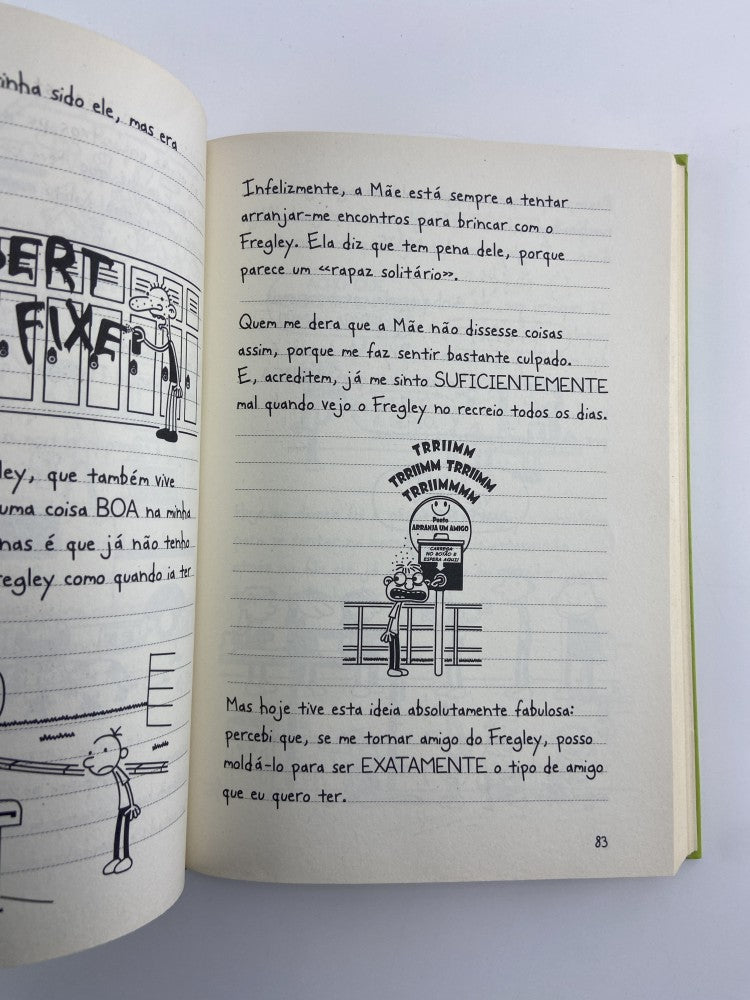 inha sido ele, mas era
BERT
FIXE?
ley, que também vive
uma coisa BOA na minha
nas é que já não tenho
regley como quando ia ter
Infelizmente, a Mãe está sempre a tentar
arranjar-me encontros para brincar com o
Fregley. Ela diz que tem pena dele, porque
parece um «rapaz solitário».
Quem me dera que a Mãe não dissesse coisas
assim, porque me faz sentir bastante culpado.
E, acreditem, já me sinto SUFICIENTEMENTE
mal quando vejo o Fregley no recreio todos os dias.
TRRIIMM
TRRIIMM TRRIIMM
TRRIIMMMM
Ponto
ARRANJA UM AMIGO
CARREGA
NO BOTÃO E
ESPERA AQUI!
Mas hoje tive esta ideia absolutamente fabulosa:
percebi que, se me tornar amigo do Fregley, posso
moldá-lo para ser EXATAMENTE o tipo de amigo
que eu quero ter.
83